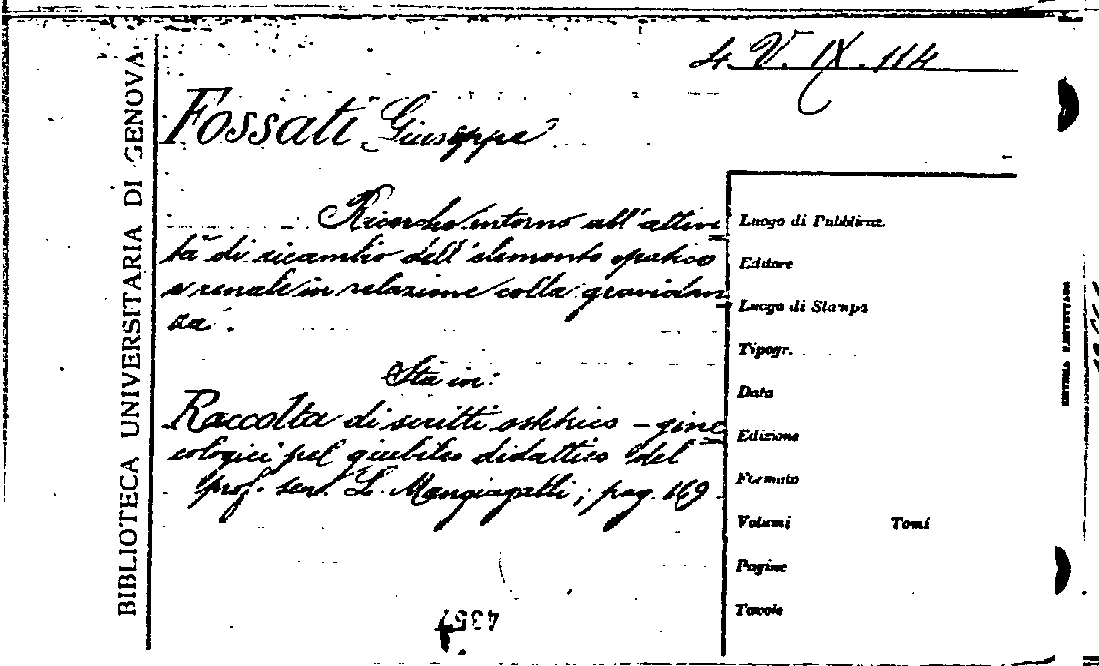 4. V. IX. 114
BIBLIOTECA UNIVERSITARIA DI GENOVA
Fossati Giuseppe
Ricerche intorno all'attivi
tà di ricambio dell'elemento epatico
e renale in relazione colla gravidan
za.
Sta in:
Raccolta di scritti ostetrico-gine
cologici pel giubileo didattico del
prof. sen. L. Mangiagalli; pag. 169.
Luogo di Pubblicaz.
Editore
Luogo di Stampa
Tipogr.
Data
Edizione
Formato
Volumi Tomi
Pagine
Tavole
4357